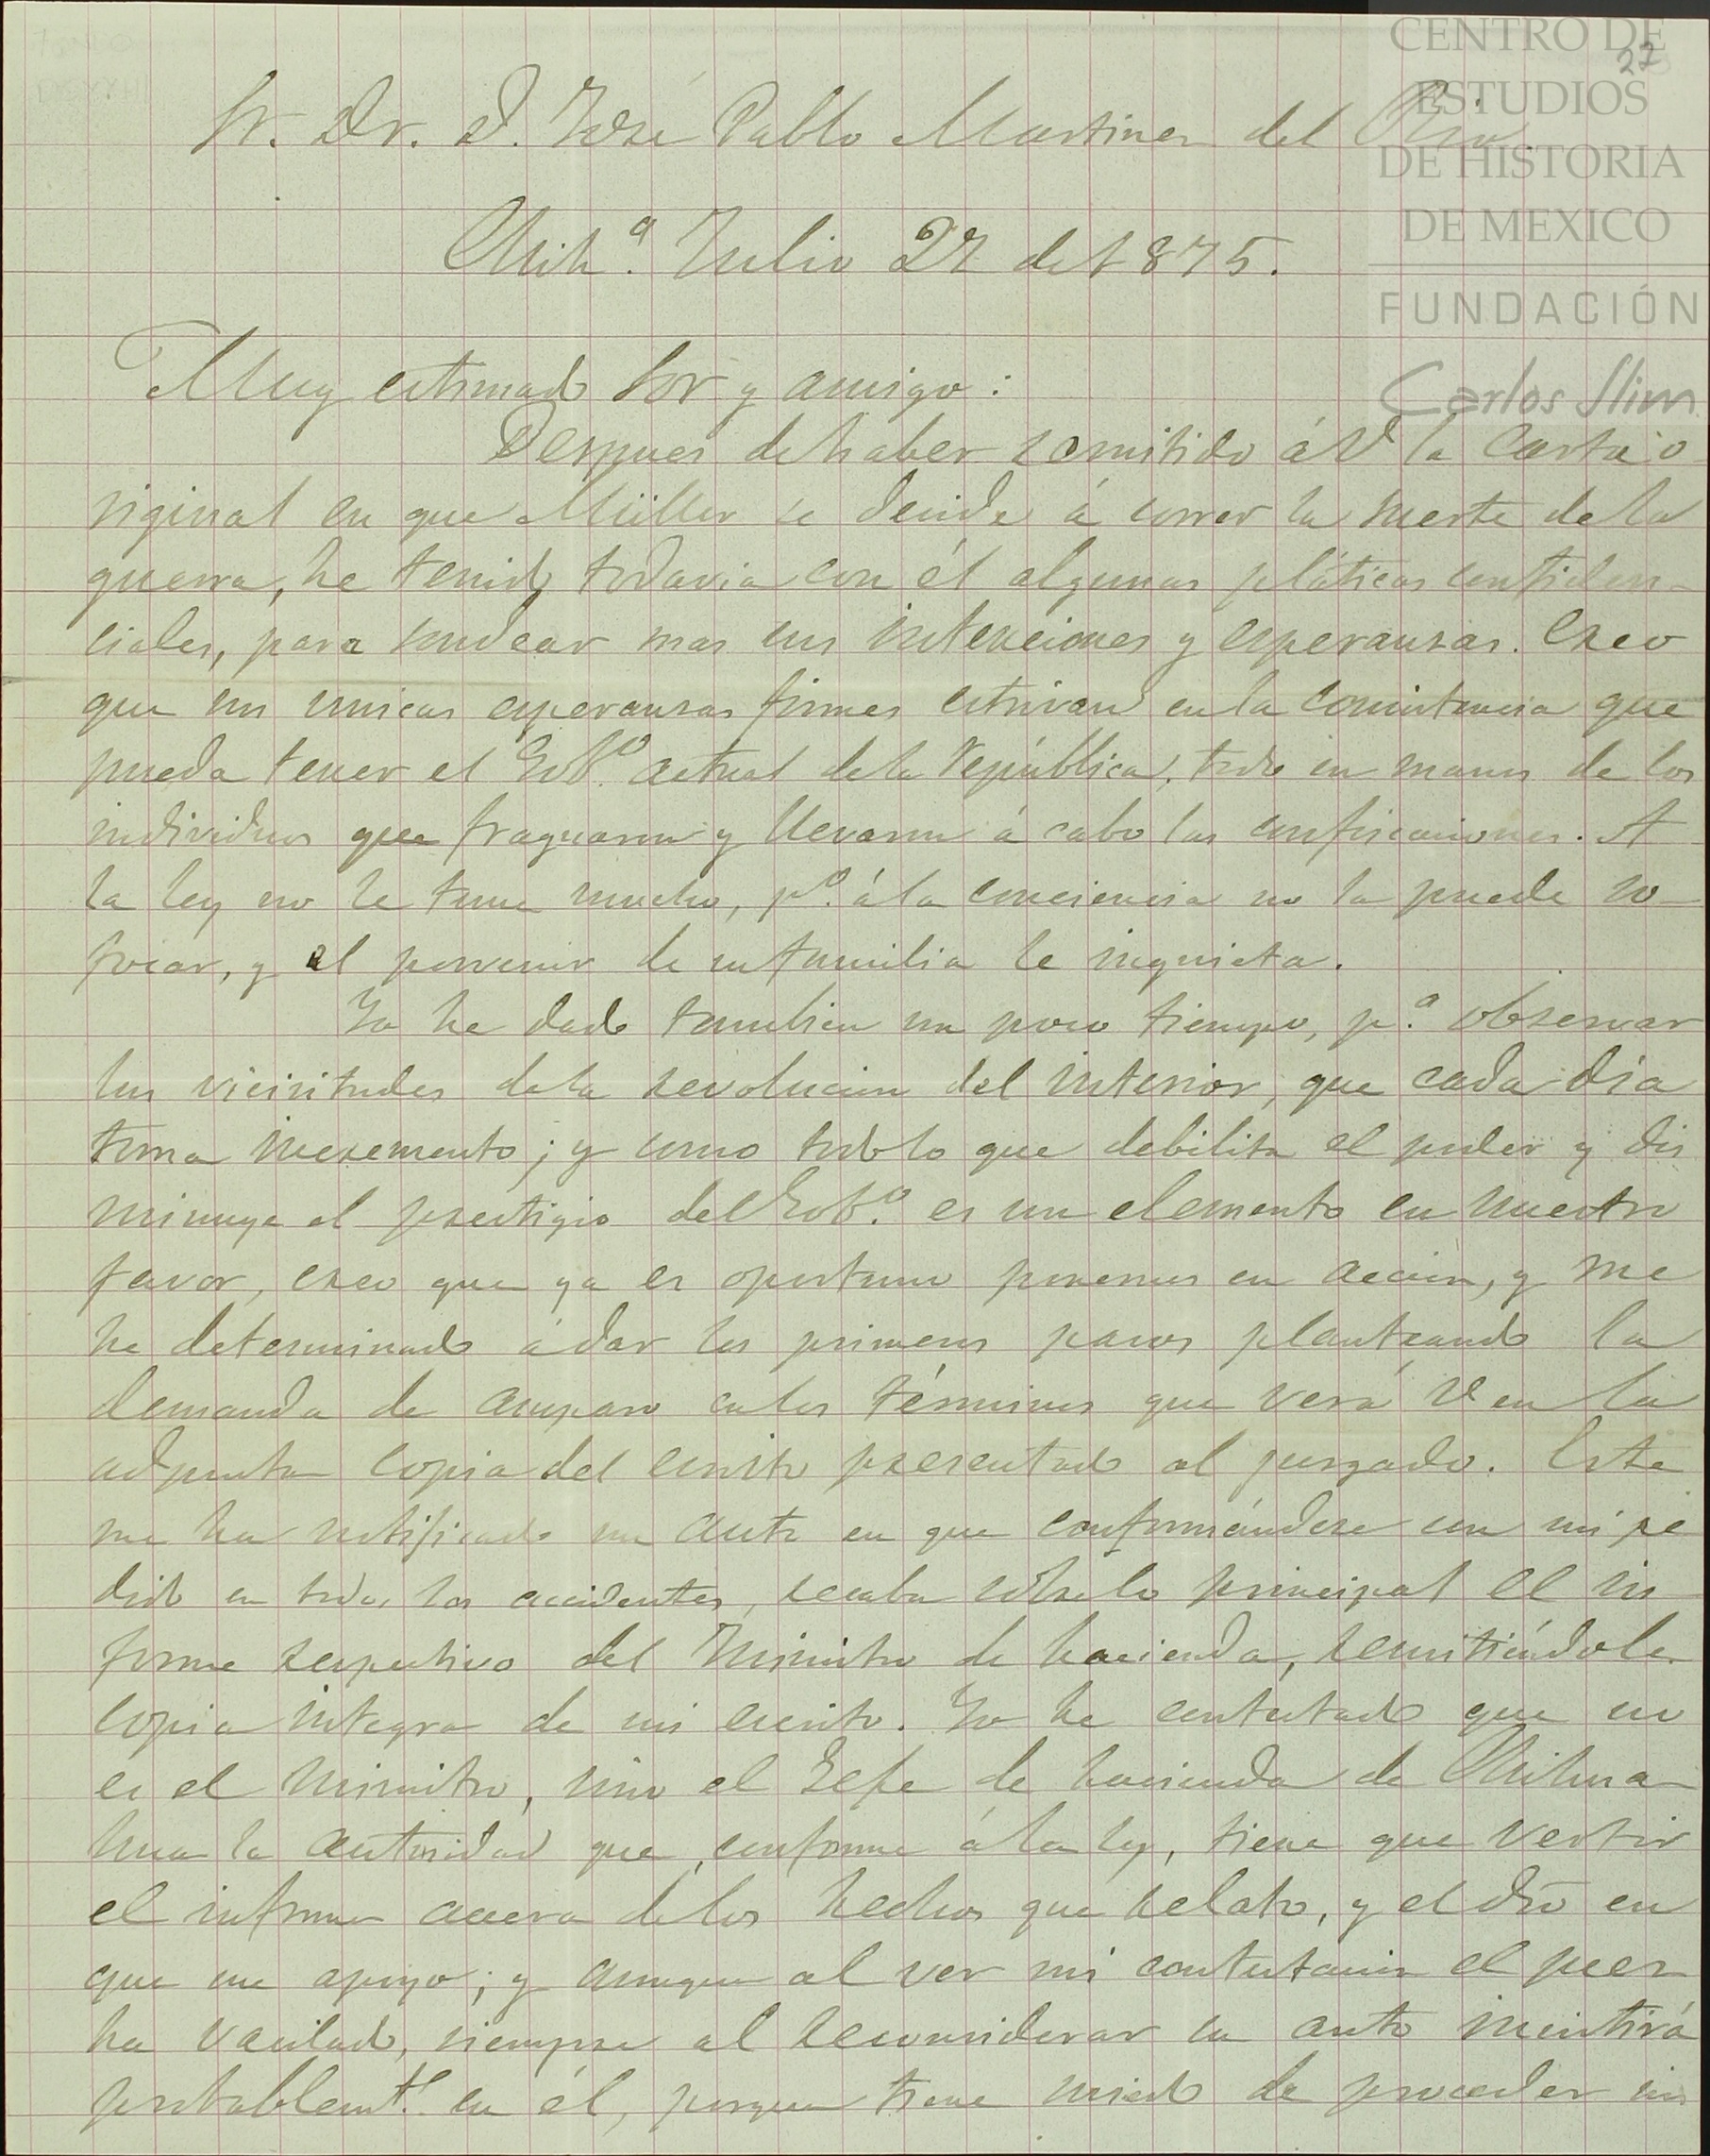 CENTRO DE
ESTUDIOS
DE HISTORIA
DE MEXICO
FUNDACIÓN
Carlos Slim
27
Sr. Dr. D. José Pablo Martinez del Rio
Chihª. Julio 27 de 1875.
Muy estimado Sor y amigo:
Despues de haber remitido á V la carta o-
riginal en que Müller se decide á correr la suerte de la
guerra, he tenido todavia con él algunas pláticas confiden-
ciales, para sondear mas sus intenciones y esperanzas. Creo
que sus unicas esperanzas firmes estrivan en la consistencia que
pueda tener el Gobº. actual de la República, todo en manos de los
individuos que fraguaron y llevaron á cabo las confiscaciones. A
la ley no le teme mucho, pº. á la conciencia no la puede so-
focar, y el porvenir de su familia le inquieta.
Yo he dado tambien un poco tiempo, pª. observar
las vicisitudes de la revolucion del interior, que cada dia
toma incremento; y como todo lo que debilita el poder y dis
minuye el prestigio del Gobº. es un elemento en nuestro
favor, creo que ya es oportuno ponernos en accion, y me
he determinado á dar los primeros pasos planteando la
demanda de amparo en los términos que verá V en la
adjunta copia del escrito presentado al juzgado. Este
me ha notificado un auto en que conformándose con mi pe
dido en todos los accidentes, recaba sobre lo principal el in
forme respectivo del Ministro de hacienda, remitiéndole
copia integra de mi escrito. Yo he contestado que no
es el Ministro, sino el Gefe de hacienda de Chihua-
hua la autoridad que, conforme á la ley, tiene que vertir
el informe acerca de los hechos que relato, y el dro en
que me apoyo; y aunque al ver mi contestacion el juez
ha vacilado, siempre al reconsiderar su auto insistirá
probablemte. en él, porque tiene miedo de proceder sin